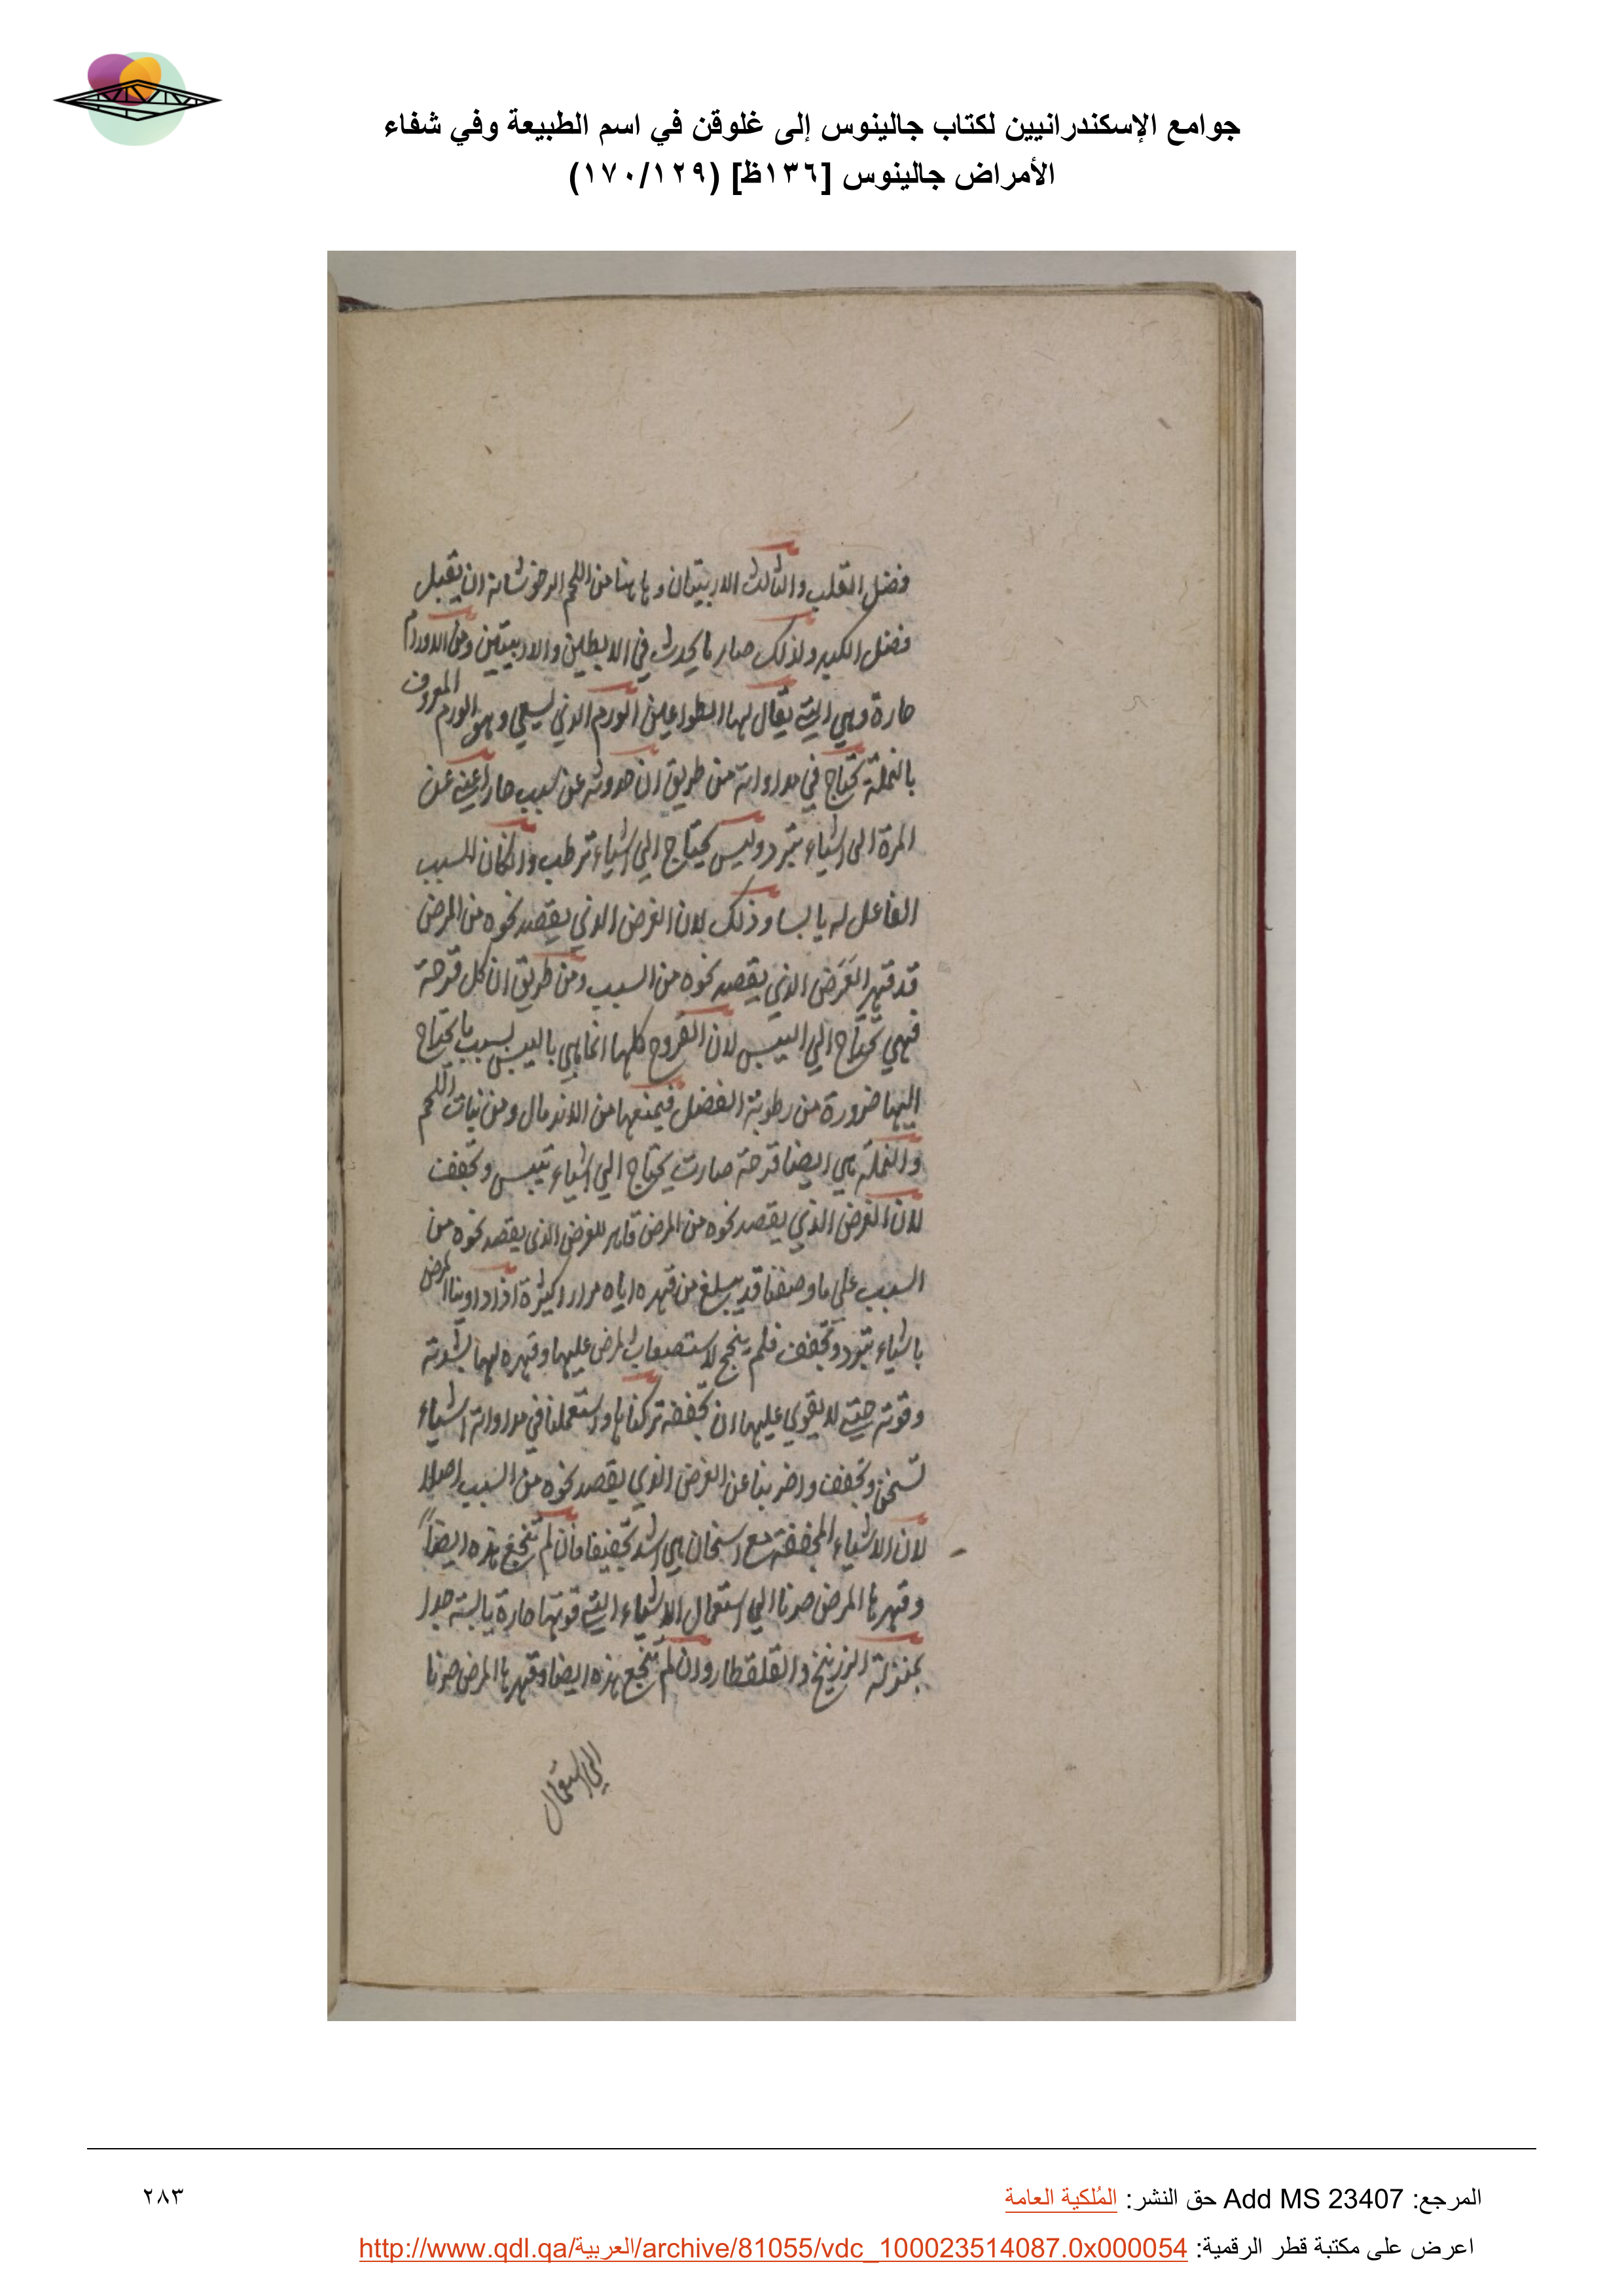 جوامع الإسكندرانيين لكتاب جالينوس إلى غلوقن في اسم الطبيعة وفي شفاء
الأمراض جالينوس [١٣٦ظ] (١٧٠/١٢٩)
فضل القلب والثالث الاربيتان وهاهنا من اللحم الرخو شانه ان يقبل
فضل الكبد ولذلك صار ما يحدث في الابطين والاربيتين ومن الاورام
حارة وهي التي يقال لها الطواعين الورم الذي يسعى وهو الورم المعروف
بالنملة تحتاج في مداواته من طريق ان حدوثه عن سبب حار اعني عن
المرة الى اشياء تبرد وليس يحتاج الي اشياء ترطب وان كان السبب
الفاعل له يابسا وذلك لان الغرض الذي يقصد نحوه من المرض
قد قهر الغرض الذي يقصد نحوه من السبب ومن طريق ان كل قرحة
فهي تحتاج الي اليبس لان القروح كلها انما هي باليبس بسبب ما يحتاج
اليها ضرورة من رطوبة الفضل فيمنعها من الاندمال ومن نبات اللحم
والنملة هي ايضا قرحة صارت يحتاج الي اشياء تيبس وتجفف
لان الغرض الذي يقصد نحوه من المرض قاهر للغرض الذي يقصد نحوه من
السبب على ما وصفنا قد يبلغ من قهره اياه مرارا كثيرة اذا داوينا المرض
باشياء تبرد وتجفف فلم ينجح لاستصعاب المرض عليها وقهره لها بشدته
وقوته حتى لا يقوي عليها ان تجففه تركناها واستعملنا في مداواته اشياء
تسخن وتجفف واضربنا عن الغرض الذي يقصد نحوه من السبب اصلا
لان الاشياء المجففة مع اسخان هي اشد تجفيفا فان لم تنجع هذه ايضاً
وقهرها المرض صرنا الي استعمال الاشياء التي قوتها حارة يابسة جدا
بمنزلة الزرنيخ والقلقطار وان لم تنجع هذه ايضا وقهرها المرض صرنا
الي استعمال
المرجع: Add MS 23407 حق النشر: المُلكية العامة
٢٨٣
اعرض على مكتبة قطر الرقمية: http://www.qdl.qa/العربية/archive/81055/vdc_100023514087.0x000054